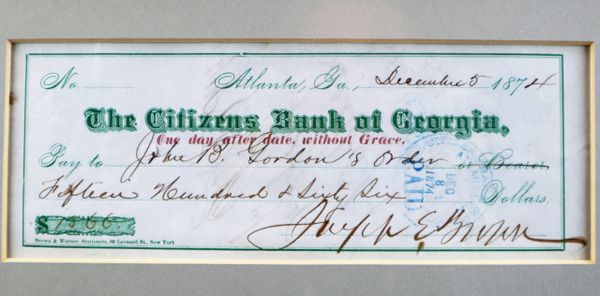 No Atlanta, Ga., December 5 1874
The Citizens Bank of Georgia,
One day after date, without Grace.
Pay to John B. Gordon's order or Bearer
Fifteen Hundred & Sixty Six Dollars.
$1566
Joseph E Brown
PAID
DEC
8
1874
Brown & Warner, Stationers, 69 Leonard St. New York